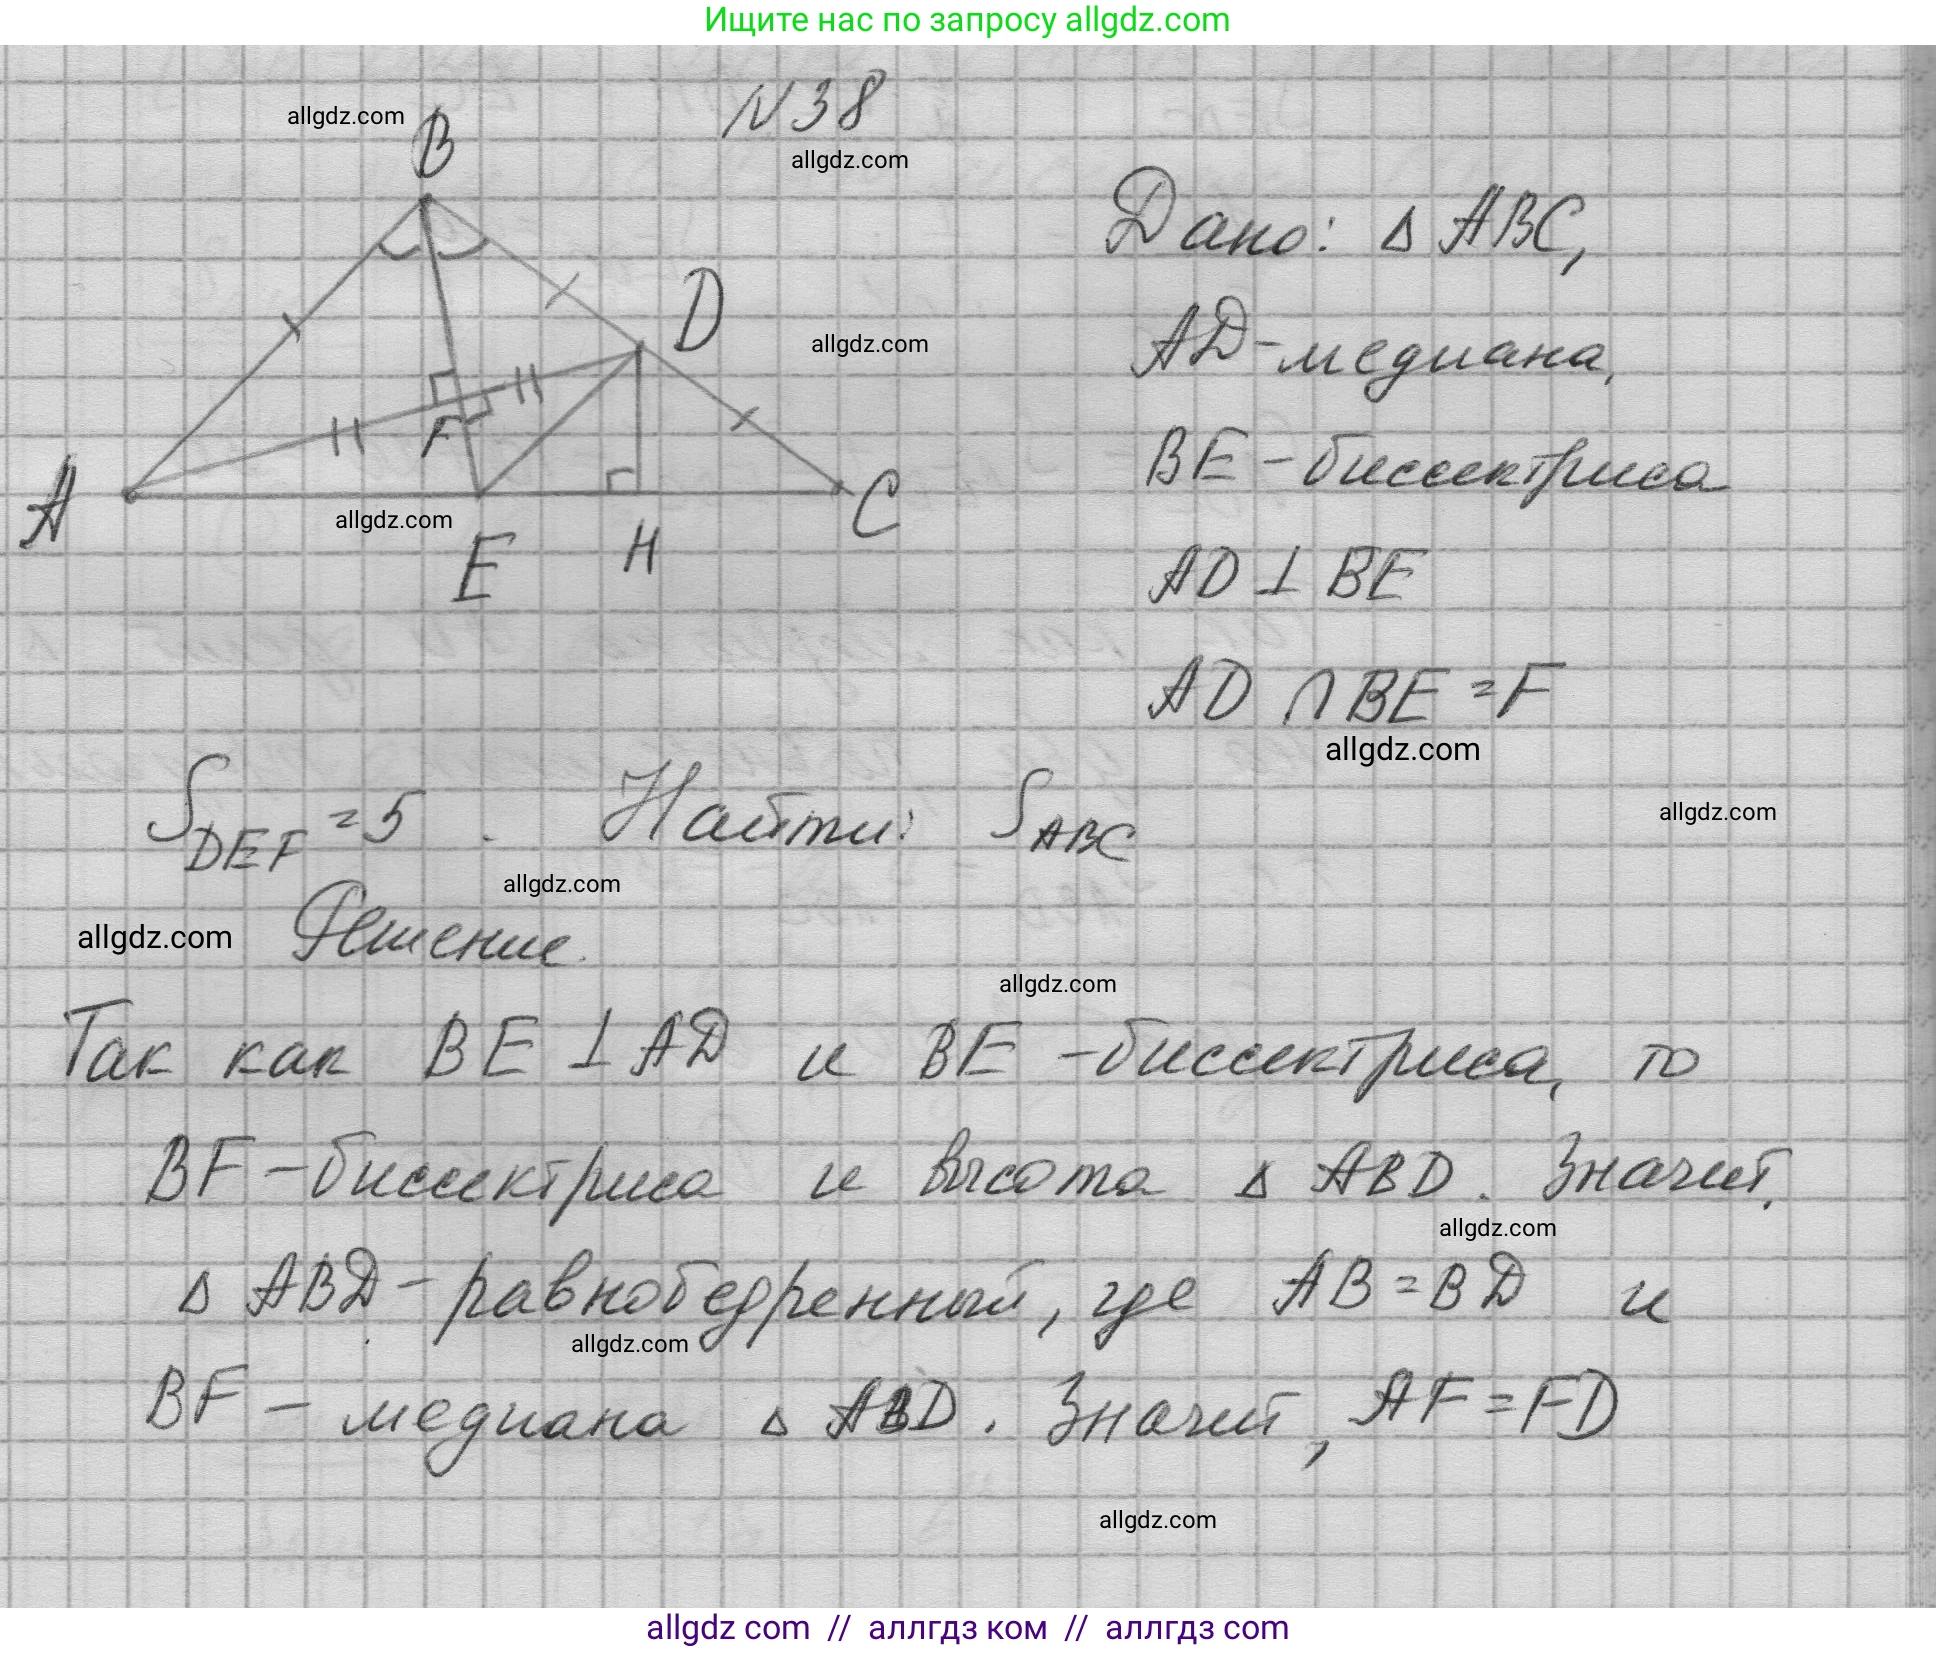 Ищите нас по запросу allgdz.com
N38
allgdz.com
allgdz.com
B
Дано: Δ ABC,
D
AD - медиана,
allgdz.com
F
BE - биссектриса
A
C
allgdz.com
E
H
AD ⊥ BE
AD ∩ BE = F
allgdz.com
S DEF = 5 . Найти: S ABC
allgdz.com
allgdz.com
allgdz.com Решение.
allgdz.com
Так как BE ⊥ AD и BE - биссектриса, то
BF - биссектриса и высота Δ ABD. Значит,
allgdz.com
Δ ABD - равнобедренный, где AB = BD и
allgdz.com
BF - медиана Δ ABD. Значит, AF = FD
allgdz.com
allgdz com // аллгдз ком // аллгдз com